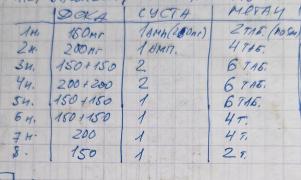 ДЕКА СУСТА МЕТАН
1н. 150мг 1 АМП. (250мг) 2 ТАБ.
2н. 200мг 1 АМП. 4 ТАБ.
3н. 150+150 2 6 ТАБ.
4н. 200+200 2 6 ТАБ.
5н. 150+150 1 6 ТАБ.
6н. 150+150 1 4 Т.
7н. 200 1 4 Т.
8. 150 1 2 Т.